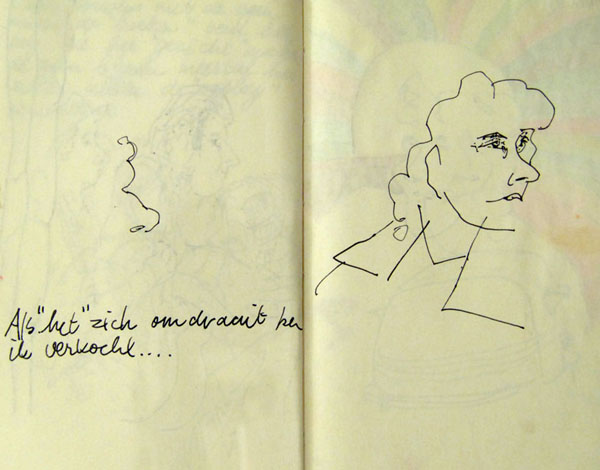 Als "het" zich omdraait ben
ik verkocht....